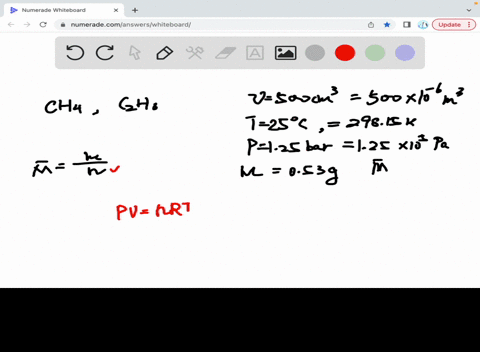 Numerade Whiteboard
numerade.com/answers/whiteboard/
Update
CH4, C2H6
V=500cm³ = 500×10⁻⁶ m³
T=25°C, = 298.15K
P=1.25 bar = 1.25 ×10² Pa
M = 0.53g M̄
M̄ = m/n ✓
PV=nRT